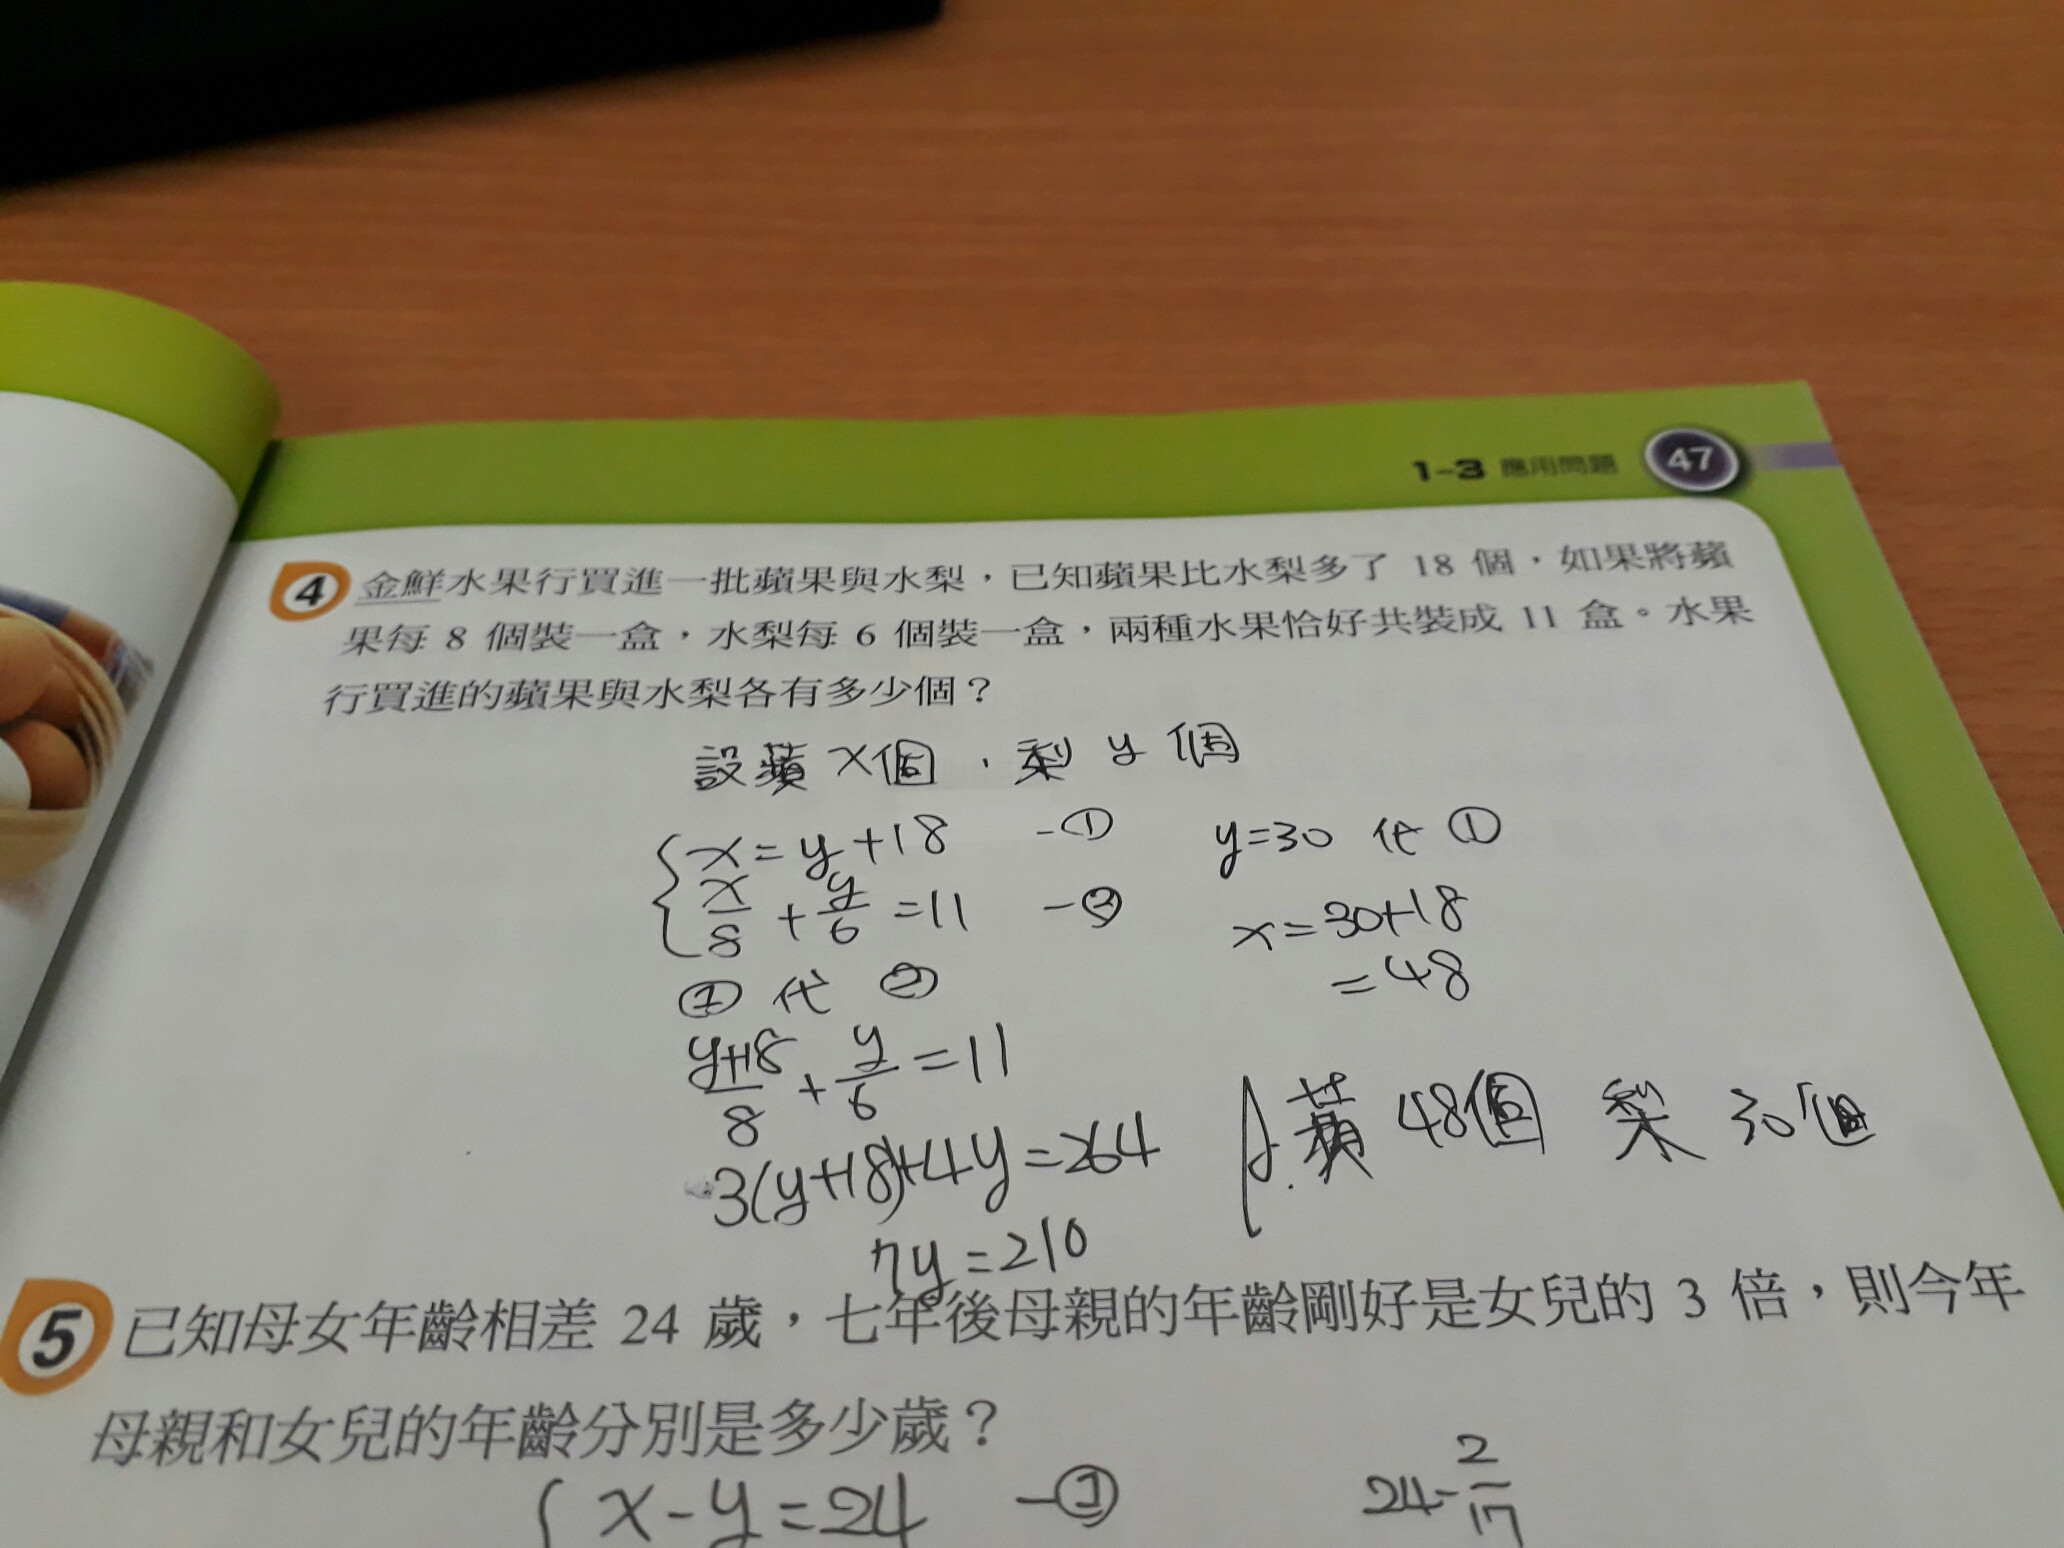 1-3 應用問題 47
4 金鮮水果行買進一批蘋果與水梨，已知蘋果比水梨多了 18 個，如果將蘋
果每 8 個裝一盒，水梨每 6 個裝一盒，兩種水果恰好共裝成 11 盒。水果
行買進的蘋果與水梨各有多少個？
設蘋 x個，梨 y 個
x=y+18 -①
x/8 + y/6 =11 -②
① 代 ②
(y+18)/8 + y/6 =11
3(y+18)+4y=264
7y=210
y=30 代 ①
x=30+18
=48
A.蘋 48個 梨 30個
5 已知母女年齡相差 24 歲，七年後母親的年齡剛好是女兒的 3 倍，則今年
母親和女兒的年齡分別是多少歲？
x-y=24 -①
24-
2
17